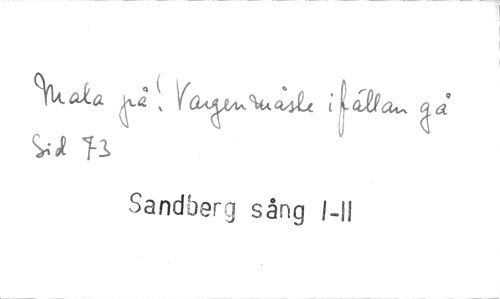 Mala på! Vargen måste i fällan gå
Sid 73
Sandberg sång I-II